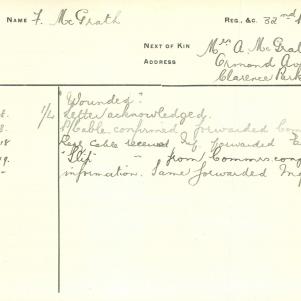 NAME F. McGrath REG. &C. 32nd
NEXT OF KIN Mrs A. McGrat
ADDRESS Ormond Av
Clarence Park
"Wounded".
8. 1/4 Letter acknowledged.
8. Cable confirmed forwarded Com
18 Cable received forwarded
19. "Slip" from Commrs. conf
information. Same forwarded Inq